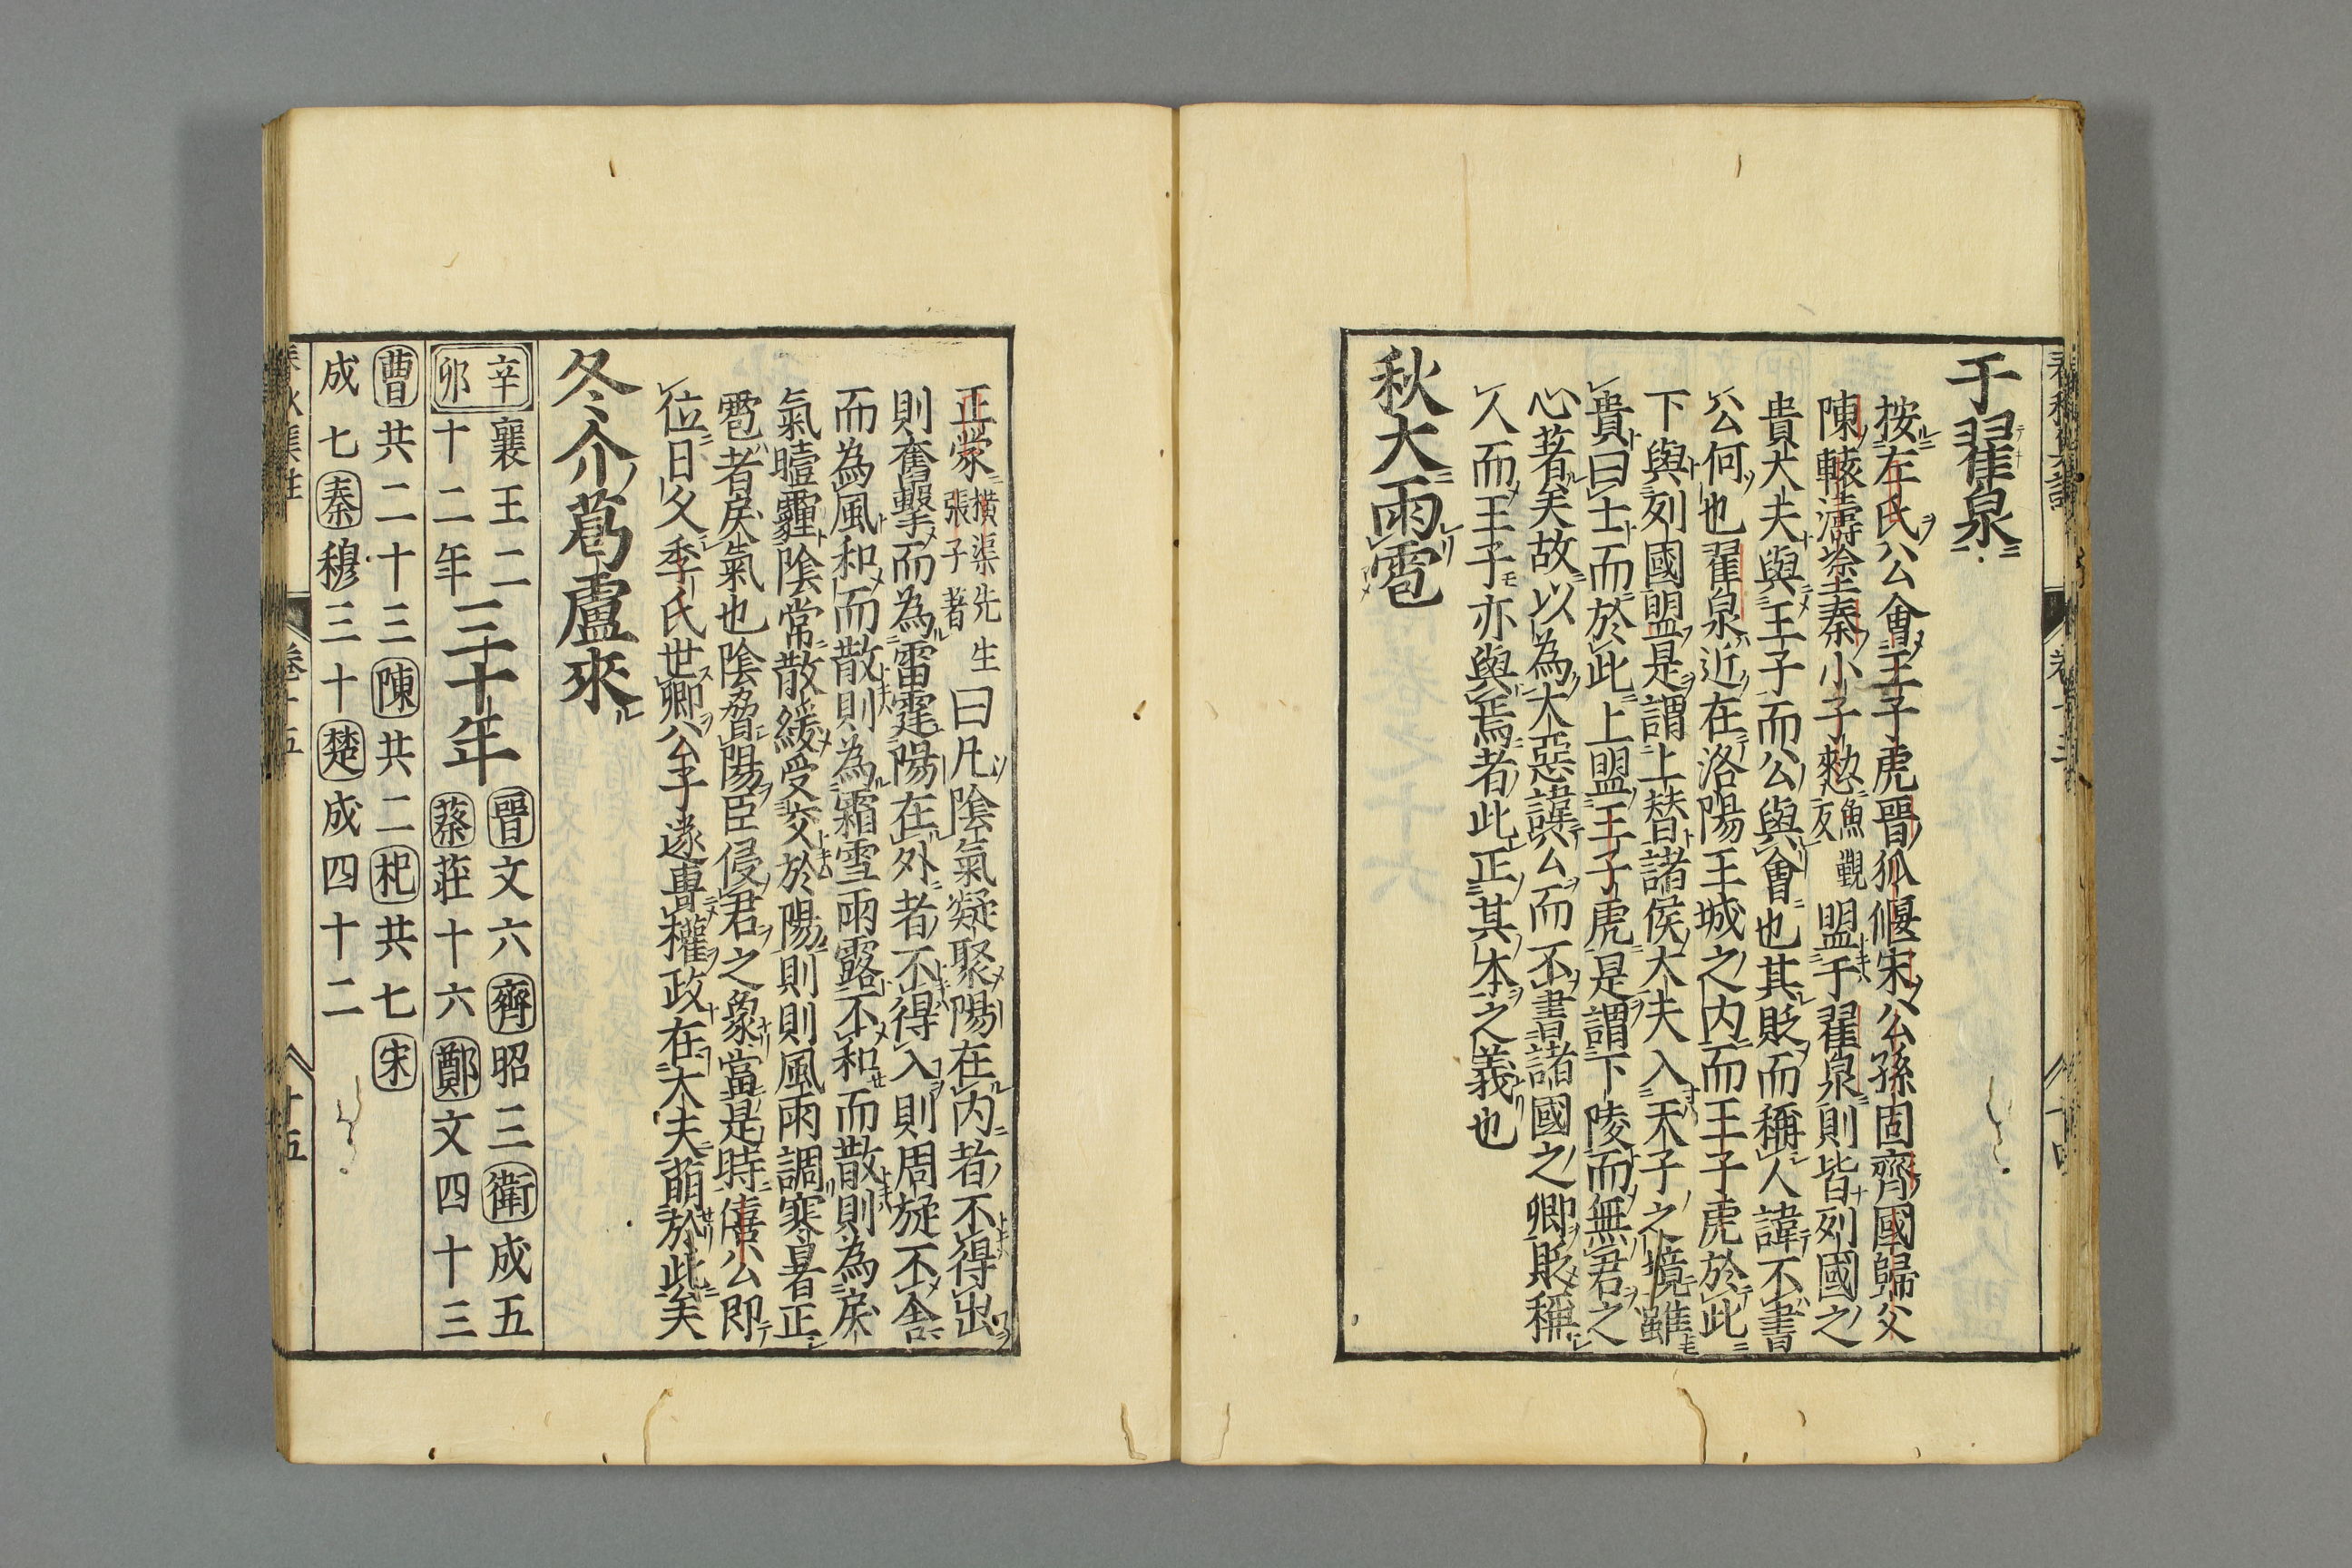 于翟泉
按左氏公會王子虎晉狐偃宋公孫固齊國歸父
陳轅濤塗秦小子憖魚覲反盟于翟泉則皆列國之
貴大夫與王子而公與會也其貶而稱人諱不書
公何也翟泉近在洛陽王城之内而王子虎於此
下與列國盟是謂上替諸侯大夫入天子之境雖
貴曰士而於此上盟王子虎是謂下陵而無君之
心著矣故以為大惡諱公而不書諸國之卿貶稱
人而王子亦與焉者此正其本之義也
秋大雨雹
正蒙横渠先生張子著曰凡陰氣凝聚陽在内者不得出
則奮擊而為雷霆陽在外者不得入則周旋不舍
而為風和而散則為霜雪雨露不和而散則為戾
氣曀霾陰常散緩受交於陽則則風雨調寒暑正
雹者戾氣也陰脅陽臣侵君之象當是時僖公即
位日久季氏世卿公子遂專權政在大夫萌於此矣
冬介葛盧來
辛卯襄王二十二年三十年晉文六齊昭三衛成五蔡莊十六鄭文四十三
曹共二十三陳共二杞共七宋
成七秦穆三十楚成四十二
卷十五
十五